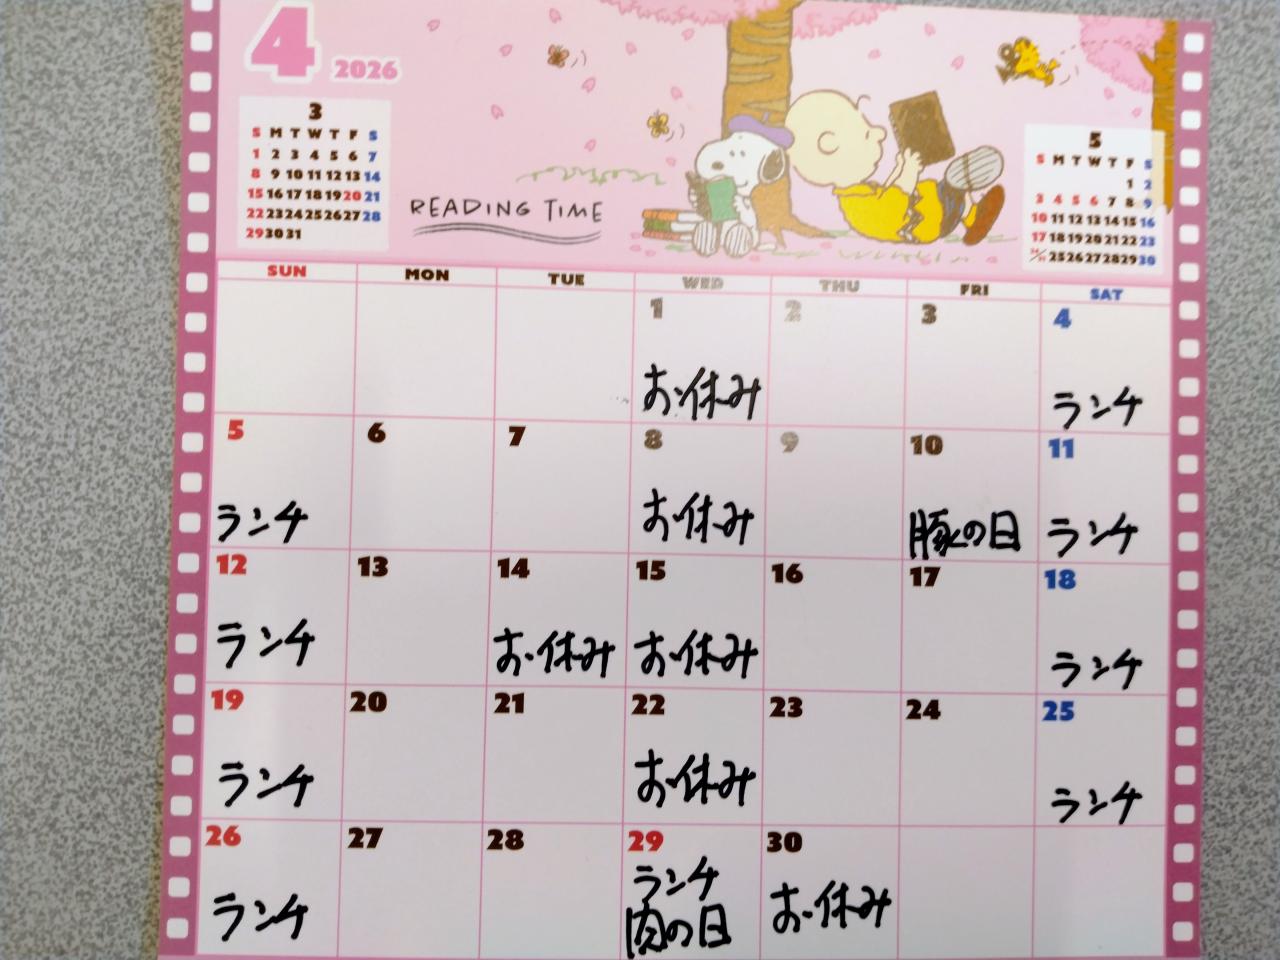 4 2026
3
S M T W T F S
1 2 3 4 5 6 7
8 9 10 11 12 13 14
15 16 17 18 19 20 21
22 23 24 25 26 27 28
29 30 31
READING TIME
5
S M T W T F S
1 2
3 4 5 6 7 8 9
10 11 12 13 14 15 16
17 18 19 20 21 22 23
24/31 25 26 27 28 29 30
SUN MON TUE WED THU FRI SAT
1 2 3 4
お休み ランチ
5 6 7 8 9 10 11
ランチ お休み 豚の日 ランチ
12 13 14 15 16 17 18
ランチ お休み お休み ランチ
19 20 21 22 23 24 25
ランチ お休み ランチ
26 27 28 29 30
ランチ ランチ お休み
肉の日